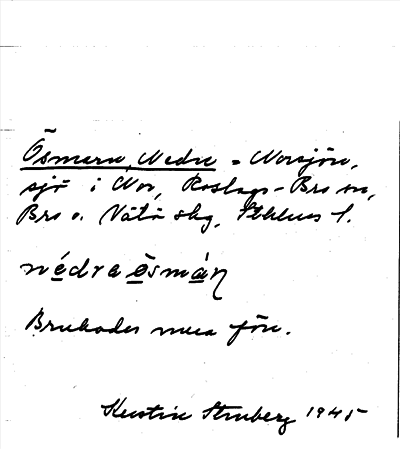 Ösmaren, Nedre = Norsjön,
sjö i Nor, Roslags-Bro sn,
Bro o. Vätö skg, Sthlms l.
nédra ö̀smáɳ
Brukades mera förr.
Kerstin Stenberg 1945